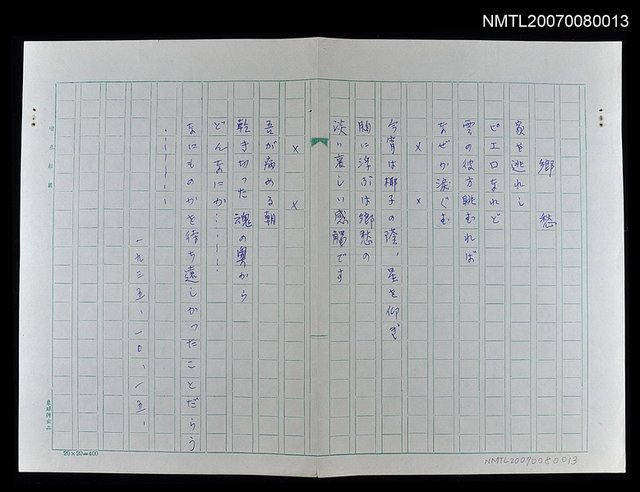 NMTL20070080013
郷愁
家を逃れし
ピエロなれど
雲の彼方眺むれば
なぜか涙ぐむ
× ×
今宵は椰子の蔭、星を仰ぎ
胸に浮ぶは郷愁の
淡い哀しい感觸です
× ×
吾が病める朝
乾き切った魂の奥から
どんなにか……
なにものかを待ち遠しかったことだらう
……
一九三五、一〇、一五、
20×20=400
NMTL20070080013